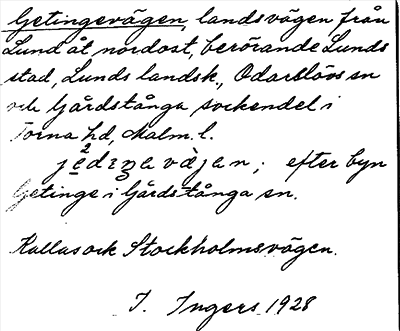 Getingevägen, landsvägen från
Lund åt nordost, berörande Lunds
stad, Lunds landsk., Odarslövs sn
och Gårdstånga sockendel i
Torna hd, Malm. l.
jedıŋavàjan; efter byn
Getinge i Gårdstånga sn.
Kallas ock Stockholmsvägen.
I. Ingers 1928